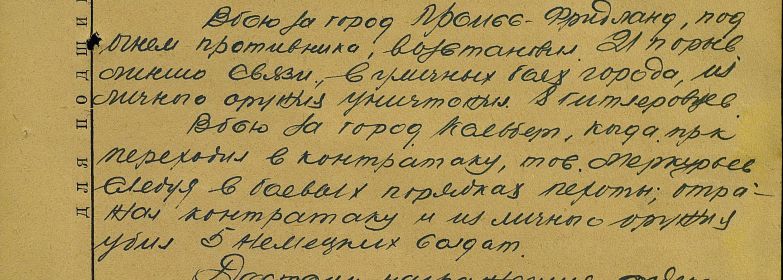 В бою за город Пройсс-Фридланд, под
огнем противника, восстановил 21 порыв
линию связи, в уличных боях города, из
личного оружия уничтожил 8 гитлеровцев.
В бою за город Кольберг, когда пр-к
переходил в контратаку, тов. Меркурьев
следуя в боевых порядках пехоты, отра-
жал контратаку и из личного оружия
убил 5 немецких солдат.
Достоин награждения
ДЛЯ ПОДШИ